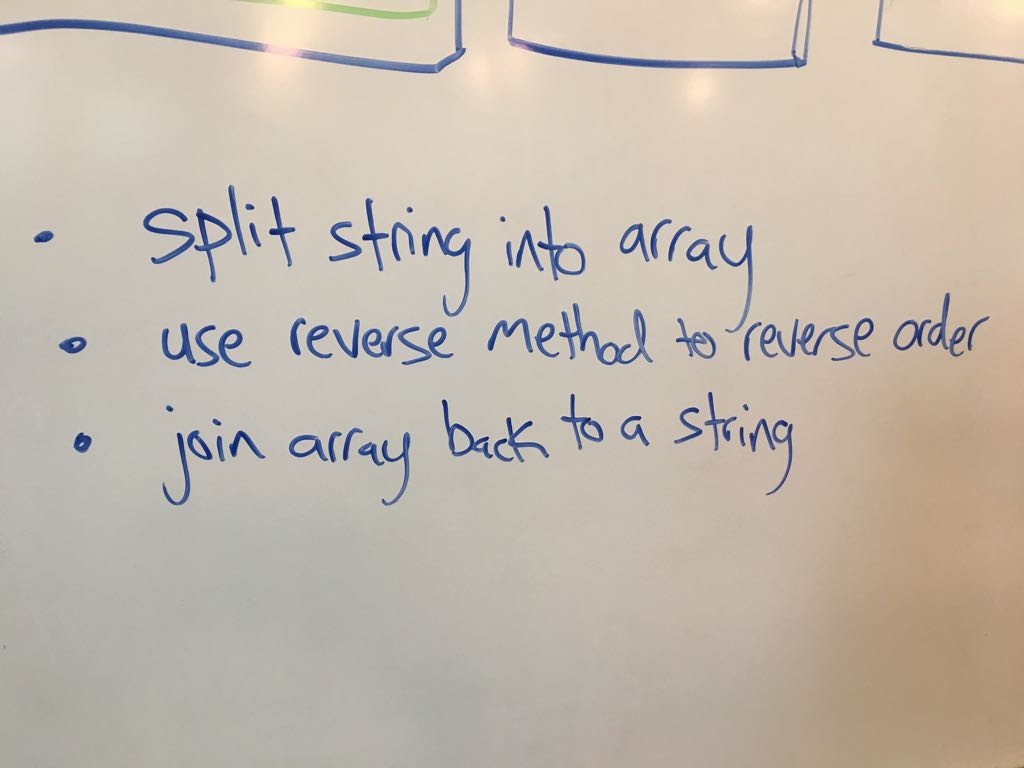 • split string into array
• use reverse method to reverse order
• join array back to a string